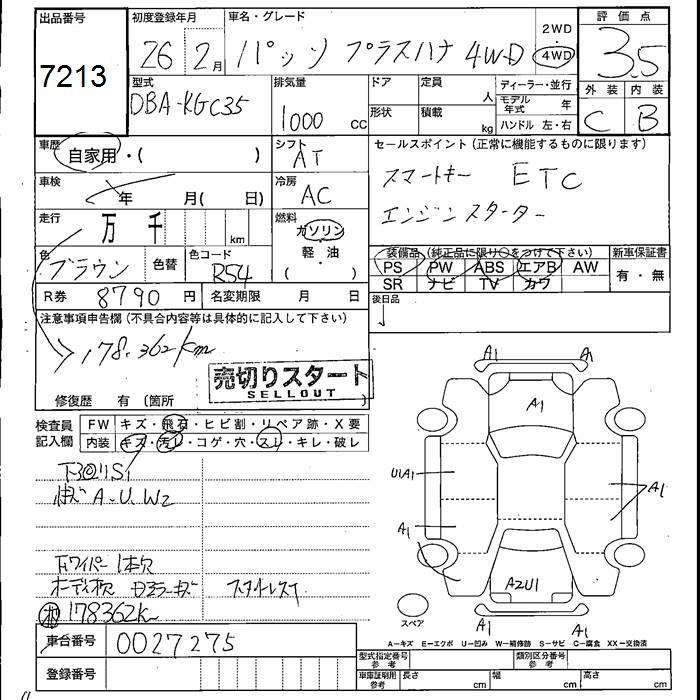 出品番号 初度登録年月 車名・グレード 2WD 評価点
7213 26 2月 パッソ プラスハナ 4WD 4WD 3.5
型式 排気量 ドア 定員 人 ディーラー・並行 外装 内装
DBA-KGC35 1000 cc 形状 積載 kg モデル年式 年 C B
ハンドル 左・右
車歴 自家用・( ) シフト AT セールスポイント (正常に機能するものに限ります)
車検 年 月( 日) 冷房 AC スマートキー ETC
走行 万 千 km 燃料 ガソリン エンジンスターター
軽・油
( ・ )
色 ブラウン 色替 色コード R54 装備品 (純正品に限り○をつけて下さい) 新車保証書
PS PW ABS エアB AW 有・無
SR ナビ TV カワ
R券 8790円 名変期限 月 日 後日品
注意事項申告欄 (不具合内容等は具体的に記入して下さい)
178.362km
売切りスタート
SELLOUT
修復歴 有 〔箇所 〕
検査員 FW キズ・飛石・ヒビ割・リペア跡・X要
記入欄 内装 キズ・汚レ・コゲ・穴・スレ・キレ・破レ
A1 A1
A1
U1A1 A1
A1
A2U1
A1 A1
S1
A.U.W2
ワイパー1本欠
178362K
スペア
A−キズ E−エクボ U−凹み W−補修跡 S−サビ C−腐食 XX−交換済
車台番号 0027275 型式指定番号 参考 類別区分番号 参考
登録番号 車庫証明用 参考 長さ cm 幅 cm 高さ cm